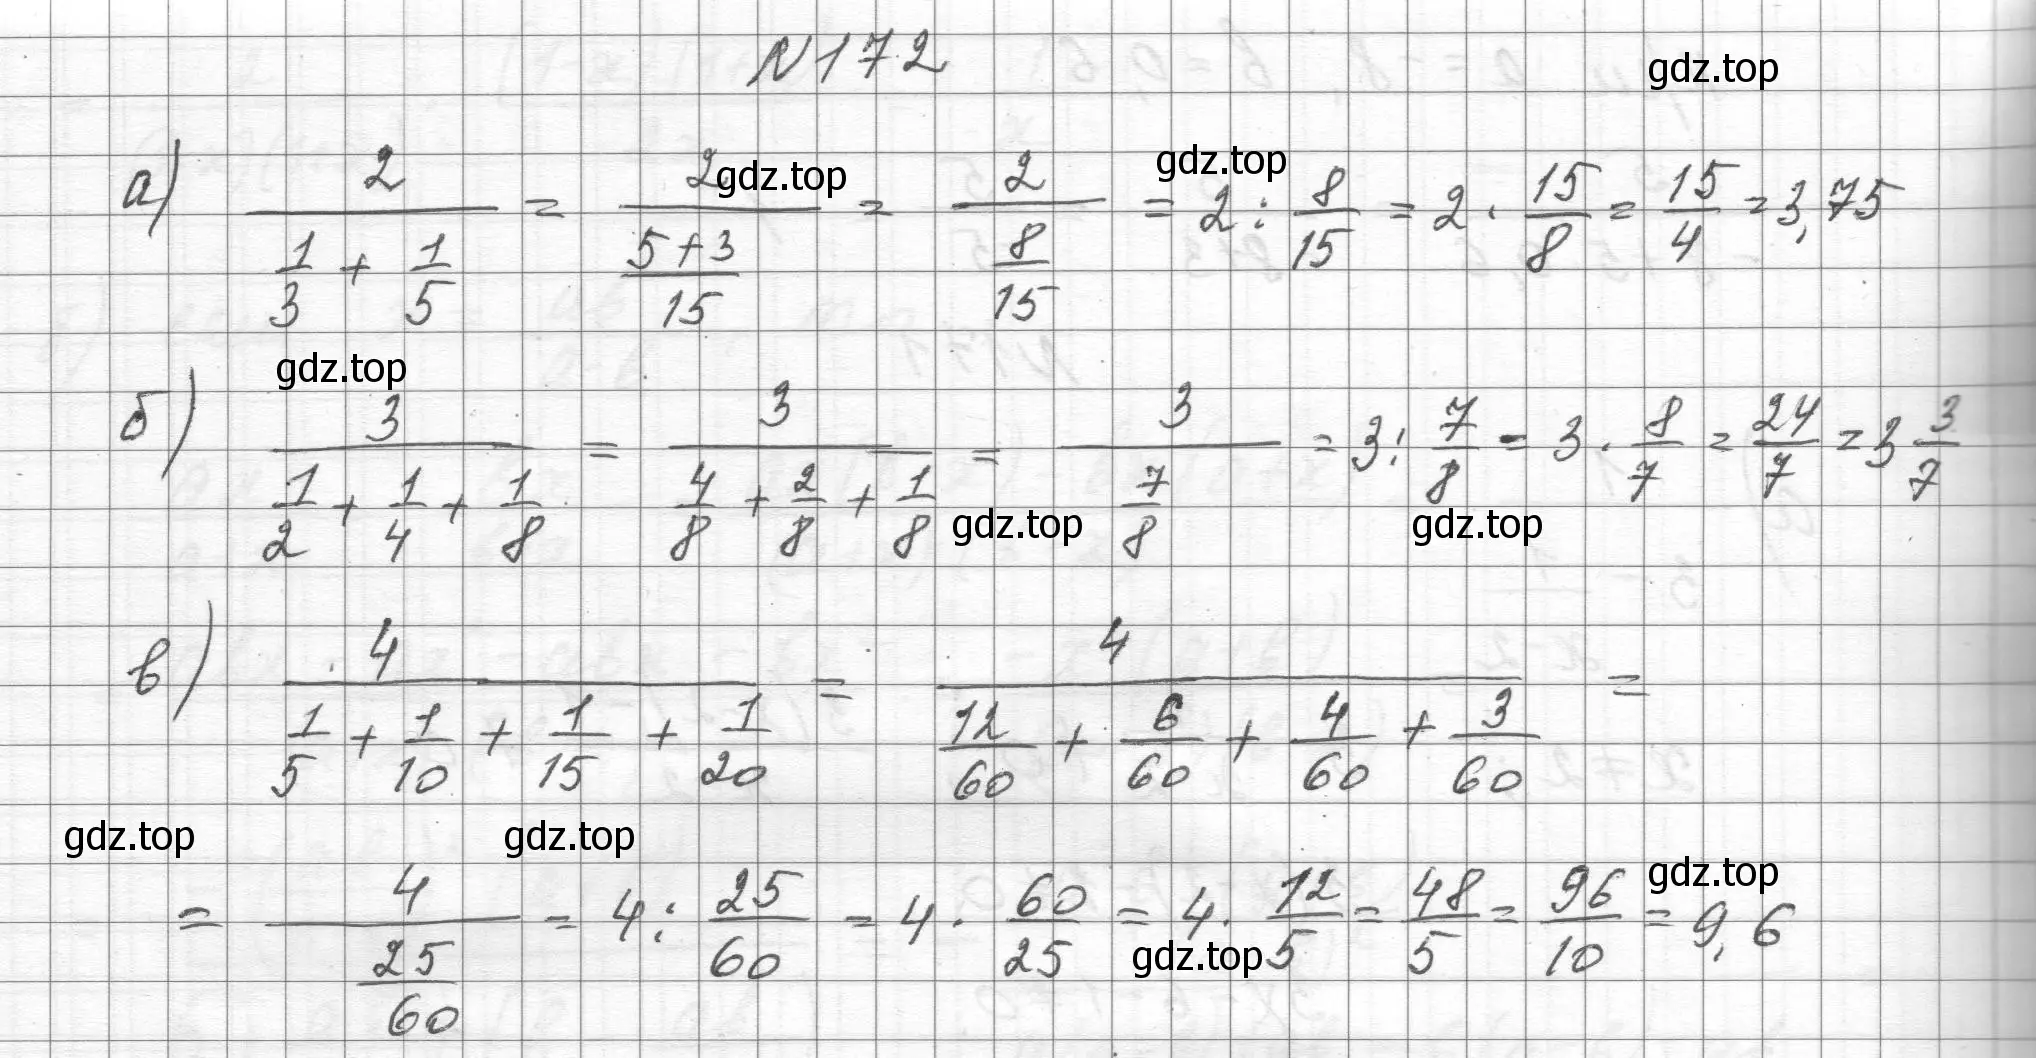 N172
gdz.top
а) 2/(1/3 + 1/5) = 2/((5+3)/15) = 2/(8/15) = 2 : 8/15 = 2 · 15/8 = 15/4 = 3,75
gdz.top gdz.top
gdz.top
б) 3/(1/2 + 1/4 + 1/8) = 3/(4/8 + 2/8 + 1/8) = 3/(7/8) = 3 : 7/8 = 3 · 8/7 = 24/7 = 3 3/7
gdz.top gdz.top
в) 4/(1/5 + 1/10 + 1/15 + 1/20) = 4/(12/60 + 6/60 + 4/60 + 3/60) =
gdz.top gdz.top gdz.top
= 4/(25/60) = 4 : 25/60 = 4 · 60/25 = 4 · 12/5 = 48/5 = 96/10 = 9,6
gdz.top